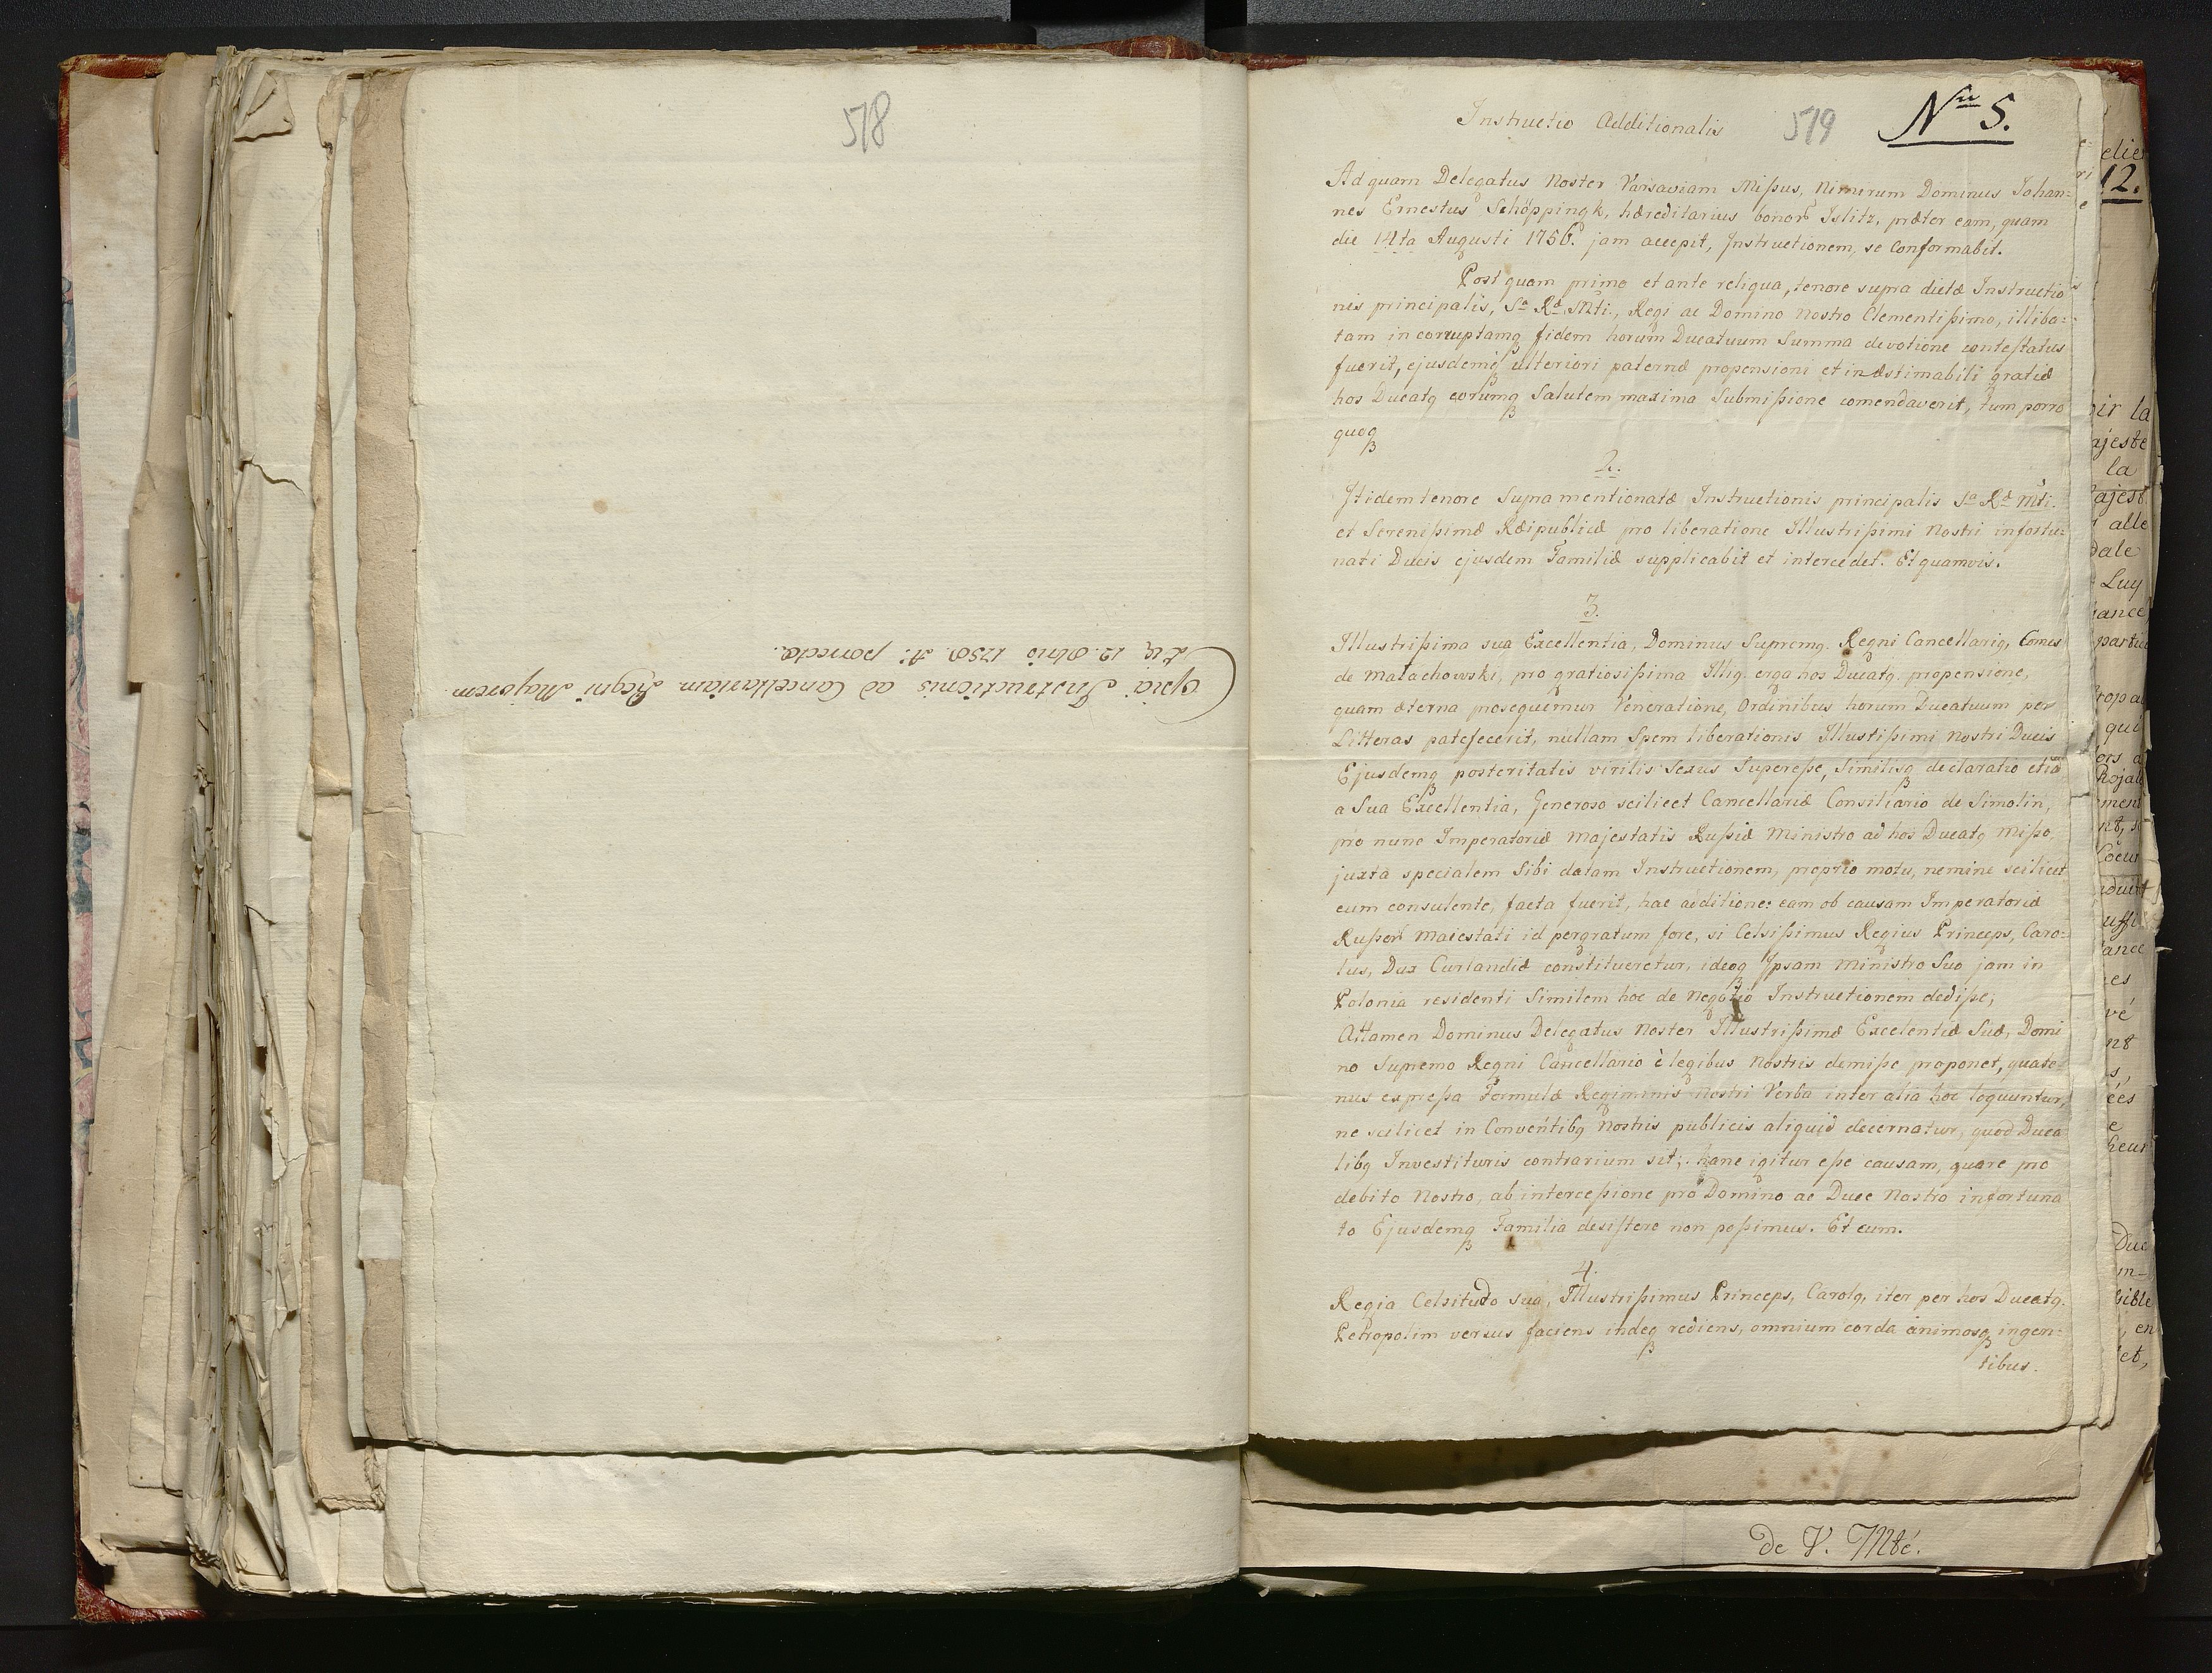 578
Copia Instructionis ad Cancellariam Regni Majorem
die 12. 8bris 1758. A: porrecta.
519
Nro 5.
Instructio Additionalis
Ad quam Delegatus Noster Varsaviam Mißus, Nimirum Dominus Johan=
nes Ernestus Schöppingk, hæreditarius bonor Islitz, præter eam, quam
die 14ta Augusti 1756. jam accepit, Instructionem, se Conformabit.
Postquam primo et ante reliqua, tenore supra dictæ Instructio
nis principalis, Sæ Ræ Mti., Regi ac Domino Nostro Clementißimo, illiba=
tam incorruptamq fidem horum Ducatuum Summa devotione contestatus
fuerit, ejusdemq ulteriori paternæ propensioni et inæstimabili gratiæ
hos Ducatq eorumq Salutem maxima Submißione comendaverit, tum porro
quoq
2.
Itidem tenore Supra mentionatæ Instructionis principalis Sæ Ræ Mti.
et Serenißimæ Reipublicæ pro liberatione Illustrißimi Nostri infortu=
nati Ducis ejusdem Familiæ supplicabit et intercedet. Et quamvis.
3.
Illustrißima sua Excellentia, Dominus Supremq. Regni Cancellariq, Comes
de Małachowski, pro gratiosißima Illiq. erga nos Ducatq. propensione,
quam æterna prosequemur Veneratione, Ordinibus horum Ducatuum per
Litteras patefecerit, nullam Spem liberationis Illustißimi Nostri Ducis
Ejusdemq posteritatis virilis Sexus Supereße, Similisq declaratio etiã
a Sua Excellentia, Generoso scilicet Cancellariæ Consiliario de Simolin,
pro nunc Imperatoriæ Majestatis Rußiæ Ministro ad hos Ducatq Mißo,
juxta specialem Sibi datam Instructionem, proprio motu, nemine scilicet
eum consulente, facta fuerit, hac additione: eam ob causam Imperatoriæ
Rußor Maiestati id pergratum fore, si Celsißimus Regius Princeps, Caro=
lus, Dux Curlandiæ constitueretur, ideoq Ipsam Ministro Suo jam in
Polonia residenti Similem hoc de Negotio Instructionem dediße;
Attamen Dominus Delegatus Noster Illustrißimæ Excelentiæ Suæ, Domi
no Supremo Regni Cancellario è legibus Nostris demiße proponet, quate=
nus expreßa Formulæ Regiminis Nostri Verba inter alia hoc loquuntur,
ne scilicet in Conventibq Nostris publicis aliquid decernatur, quod Duca
libq Investituris contrarium sit; hanc igitur eße causam, quare pro
debito Nostro, ab interceßione pro Domino ac Duce Nostro infortuna
to Ejusdemq Familia desistere non poßimus. Et cum.
4.
Regia Celsitudo sua, Illustrißimus Princeps, Carolq, iter per hos Ducatq.
Petropolim versus faciens indeq rediens, omnium corda animosq ingen=
tibus.
de V. Mté.
elie
12.
oir la
ajesté
la
ajest
alle
dale
Luy